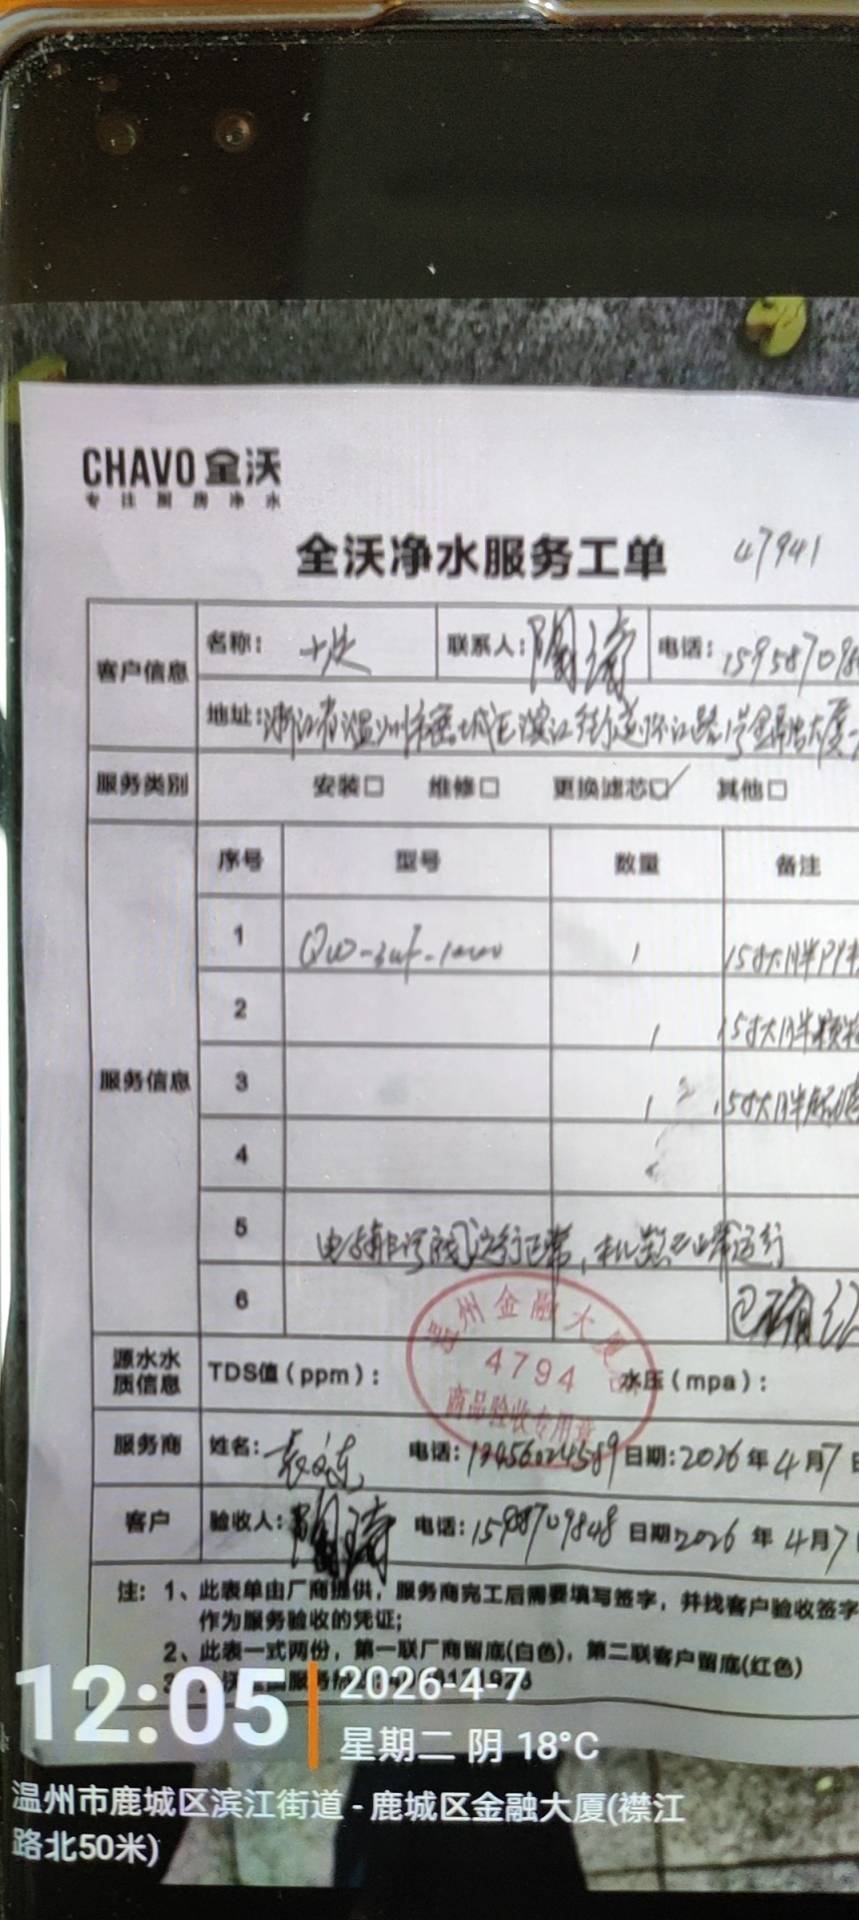 CHAVO 全沃
专注厨房净水
全沃净水服务工单 47941
客户信息 名称: 联系人:陶涛 电话:159587098
地址:浙江省温州市鹿城区滨江街道 江路1号金融大厦
服务类别 安装□ 维修□ 更换滤芯☑ 其他□
序号 型号 数量 备注
服务信息
1 1 15寸大胖PP棉
2 1 15寸大胖颗粒
3 1 2 15寸大胖
4
5 运行正常,机器正常运行
6 已确认
温州金融大厦
4794
商品验收专用章
源水水质信息 TDS值(ppm): 水压(mpa):
服务商 姓名: 电话: 日期:2026年4月7日
客户 验收人:陶涛 电话:15958709848 日期2026年4月7
注: 1、此表单由厂商提供,服务商完工后需要填写签字,并找客户验收签字
作为服务验收的凭证;
2、此表一式两份,第一联厂商留底(白色),第二联客户留底(红色)
12:05 2026-4-7
星期二 阴 18°C
温州市鹿城区滨江街道 - 鹿城区金融大厦(襟江
路北50米)